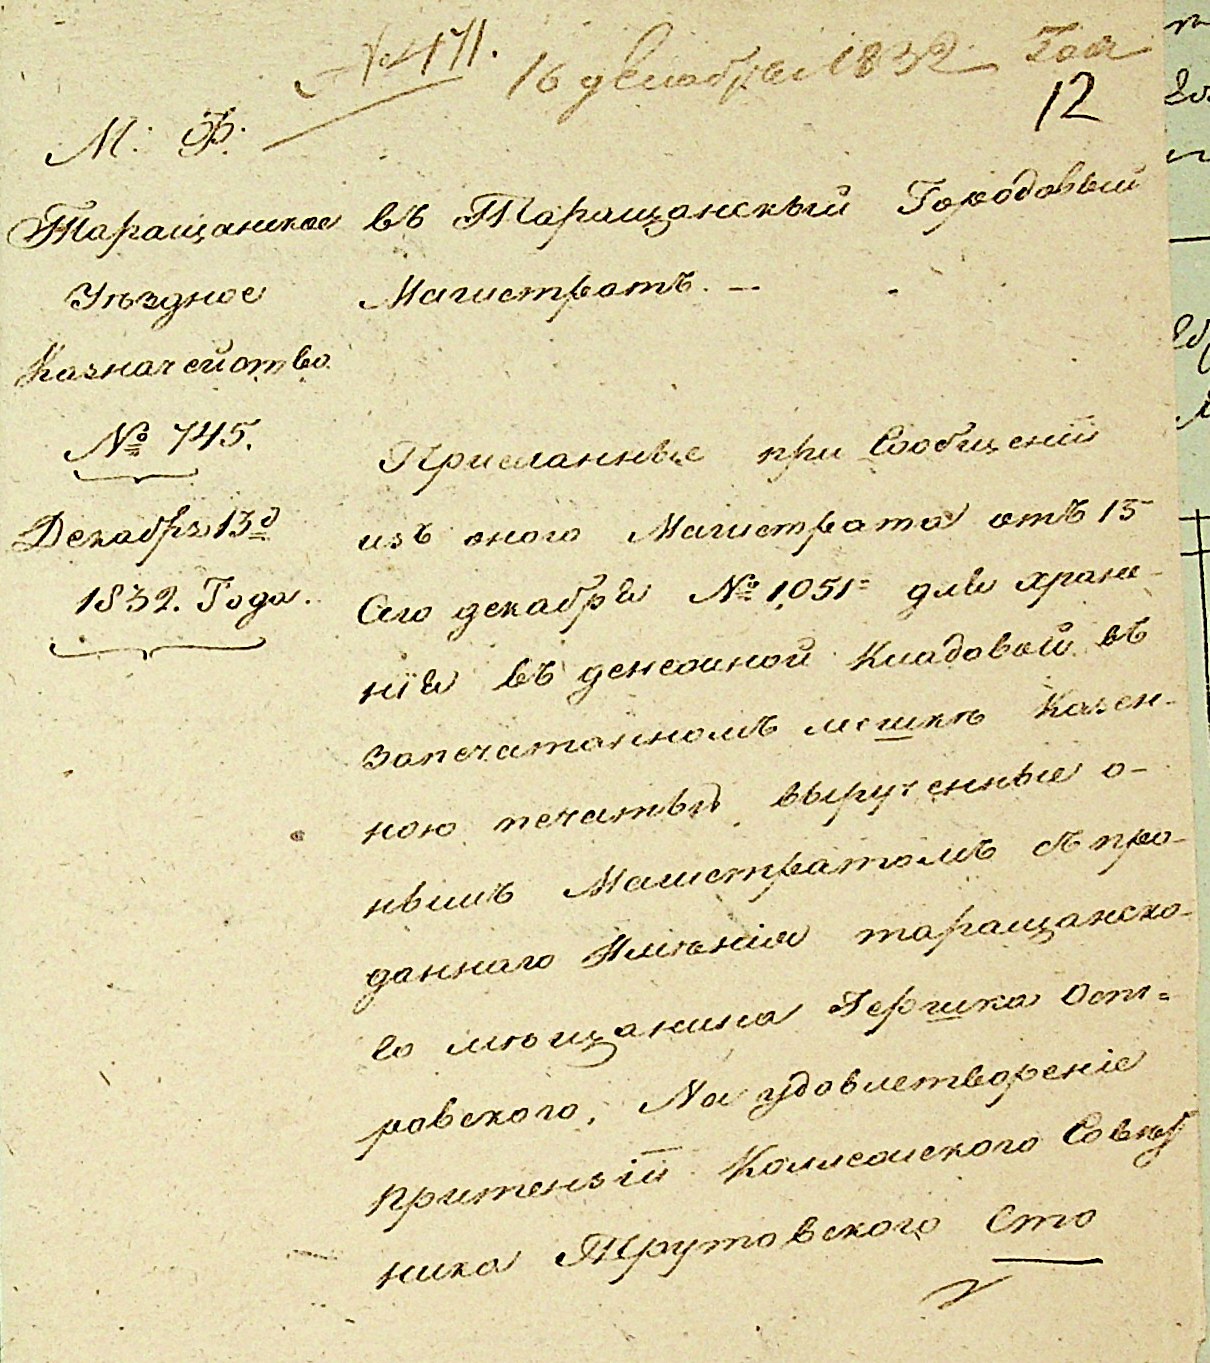 № 471. 16 декабря 1832 Года
12
М: Ф:
Таращанское
Уѣздное
Казначейство
№ 745.
Декабря 13д
1832. Года.
въ Таращанскый Городовый
Магистратъ. —
Присланные при Сообщеніи
изъ оного Магистрата отъ 13
Сего декабря № 1,051= для хране-
нія въ денежной Кладовой въ
запечатанномъ мешкѣ Казен-
ною печатью вырученные о-
нымъ Магистратомъ съ про-
даннаго Имѣнія таращанско-
го мѣщанина Гершка Остъ=
ровского, На удовлетвореніе
притензіи Коллежского Совѣт
ника Трутовского Сто